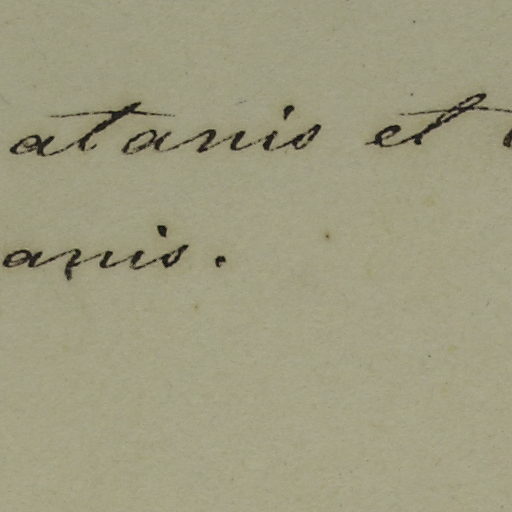 atanis et
anis.